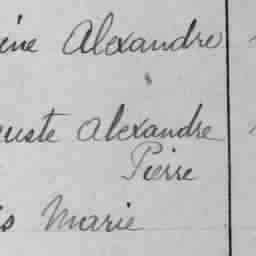 ine Alexandre
uste Alexandre
Pierre
is Marie